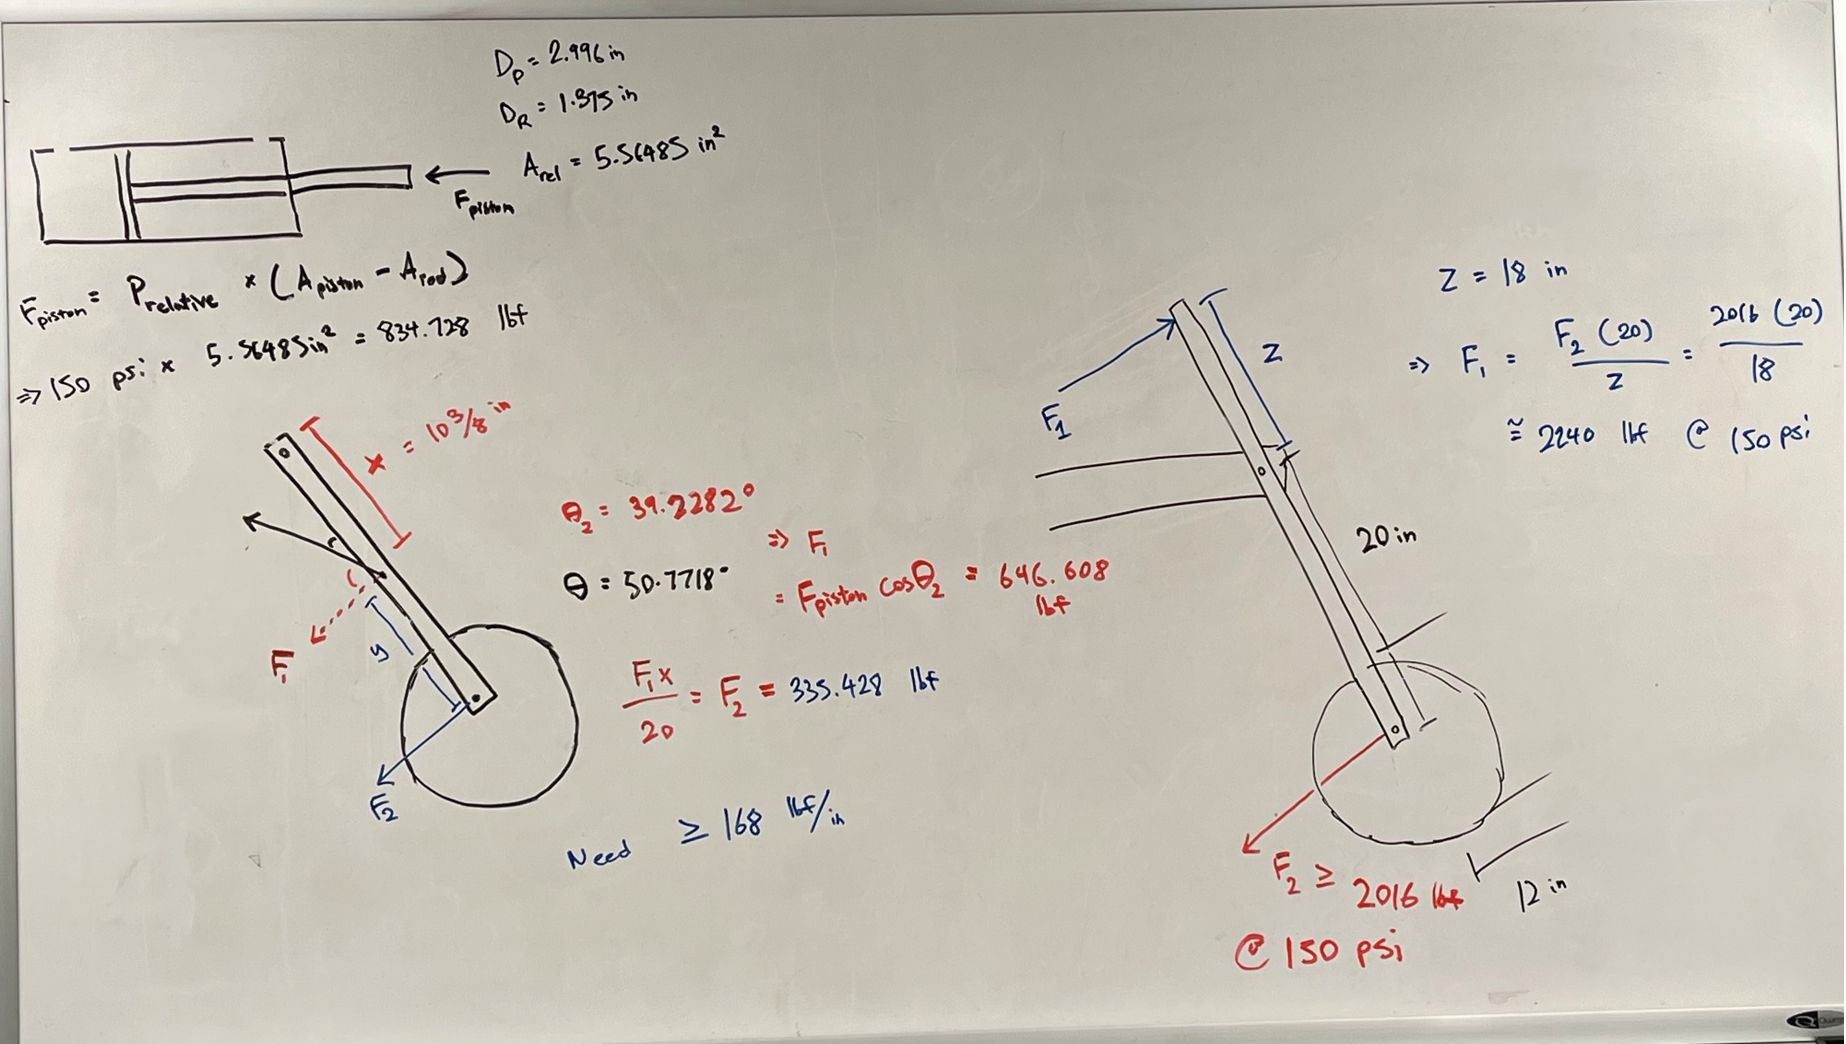 D_P = 2.996 in
D_R = 1.375 in
A_rel = 5.56485 in²
F_piston
F_piston = P_relative × (A_piston − A_rod)
⇒ 150 psi × 5.56485in² = 834.728 lbf
x = 10 3/8 in
F₁
y
F₂
θ₂ = 39.2282°
θ = 50.7718°
⇒ F₁
= F_piston cosθ₂ = 646.608
lbf
F₁x / 20 = F₂ = 335.428 lbf
Need ≥ 168 lbf/in
z
F₁
20 in
F₂ ≥ 2016 lbf
@ 150 psi
12 in
z = 18 in
⇒ F₁ = F₂ (20) / z = 2016 (20) / 18
≅ 2240 lbf @ 150 psi